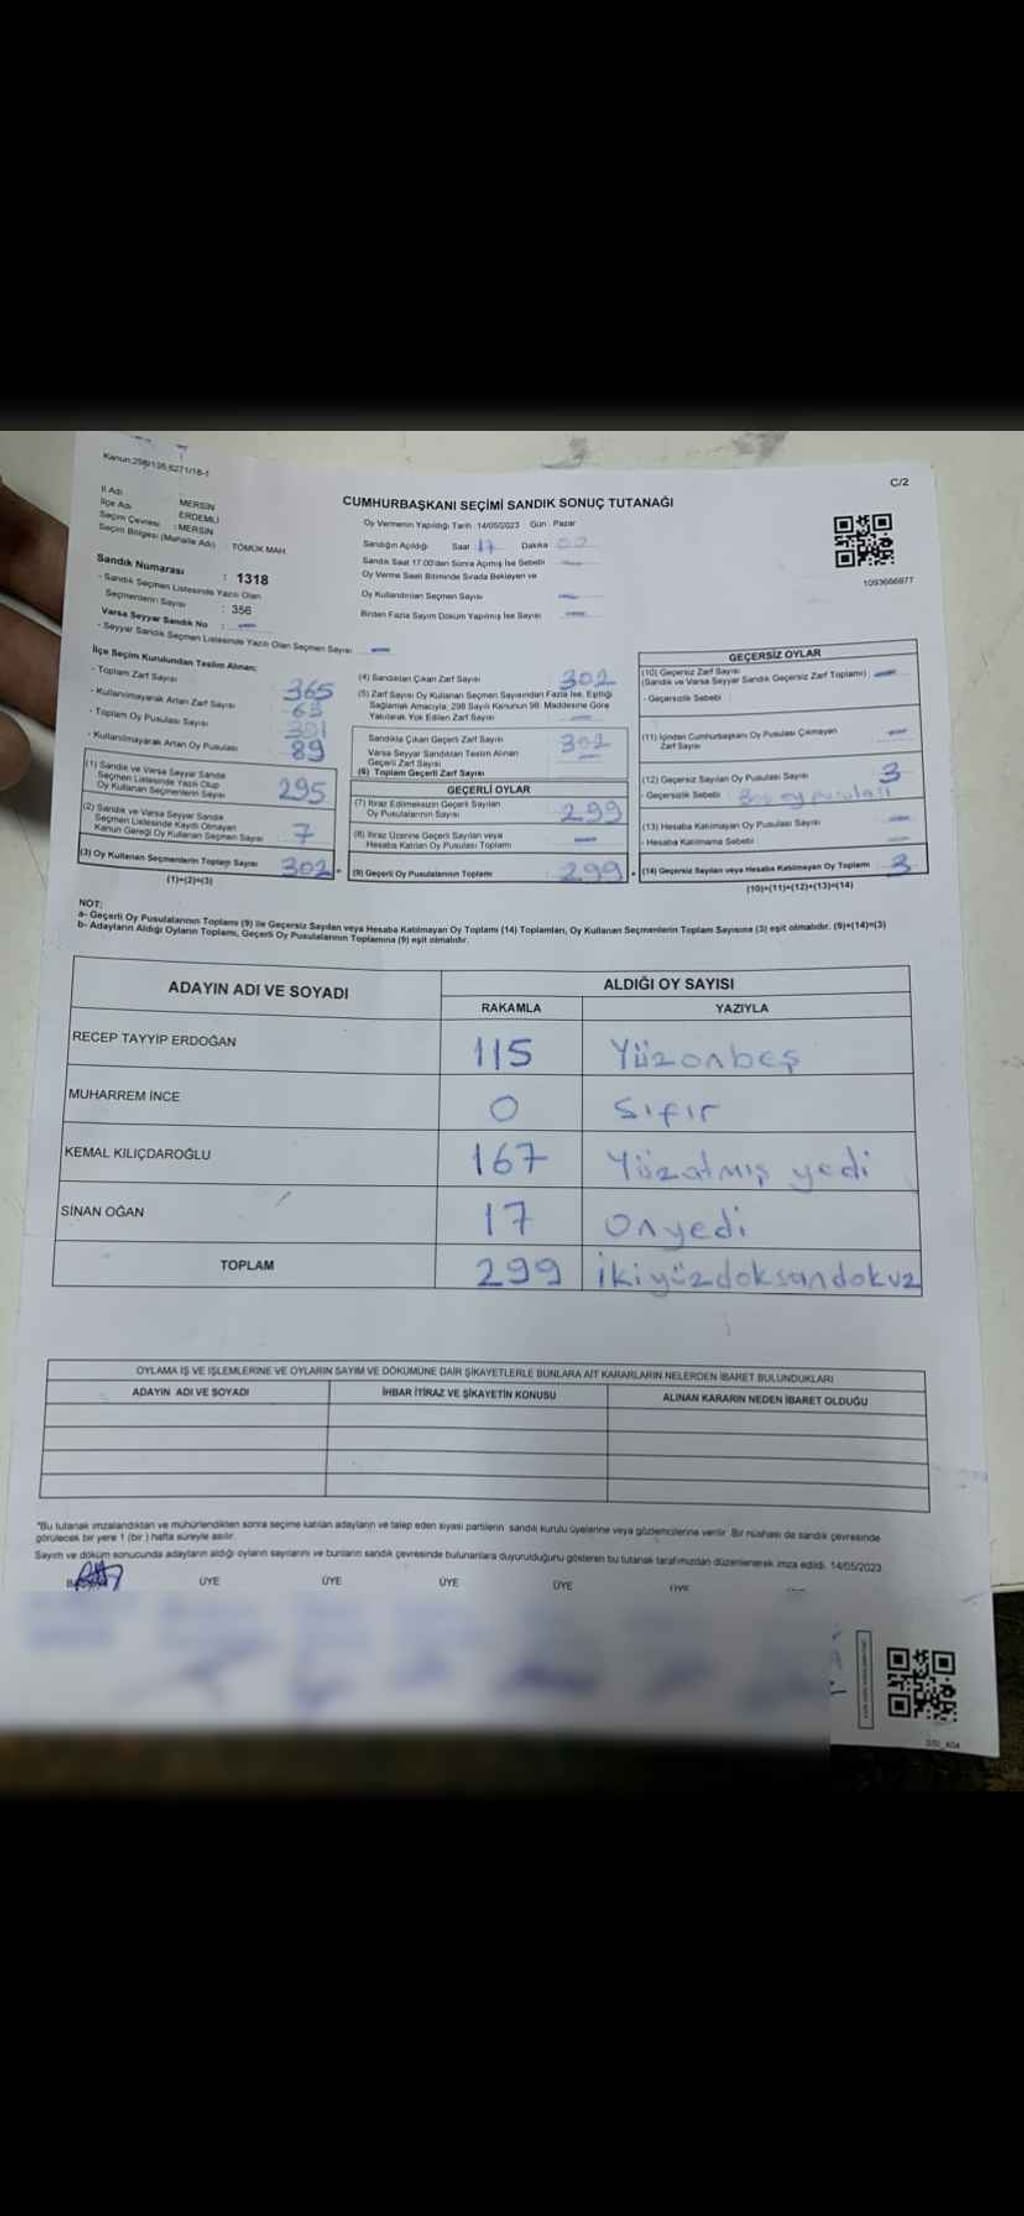 Kanun:298/105,6271/18-1
C/2
CUMHURBAŞKANI SEÇİMİ SANDIK SONUÇ TUTANAĞI
İl Adı : MERSİN
İlçe Adı : ERDEMLİ
Seçim Çevresi : MERSİN
Seçim Bölgesi (Mahalle Adı) : TÖMÜK MAH.
Oy Vermenin Yapıldığı Tarih : 14/05/2023 Gün : Pazar
Sandığın Açıldığı Saat 17 Dakika 00
Sandık Saat 17.00'den Sonra Açılmış İse Sebebi
Oy Verme Saati Bitiminde Sırada Bekleyen ve
Oy Kullandırılan Seçmen Sayısı
Birden Fazla Sayım Döküm Yapılmış İse Sayısı
1093666977
Sandık Numarası : 1318
- Sandık Seçmen Listesinde Yazılı Olan
Seçmenlerin Sayısı : 356
Varsa Seyyar Sandık No : -
- Seyyar Sandık Seçmen Listesinde Yazılı Olan Seçmen Sayısı -
İlçe Seçim Kurulundan Teslim Alınan:
- Toplam Zarf Sayısı 365
- Kullanılmayarak Artan Zarf Sayısı 63
- Toplam Oy Pusulası Sayısı
- Kullanılmayarak Artan Oy Pusulası 89
(1) Sandık ve Varsa Seyyar Sandık
Seçmen Listesinde Yazılı Olup
Oy Kullanan Seçmenlerin Sayısı 295
(2) Sandık ve Varsa Seyyar Sandık
Seçmen Listesinde Kayıtlı Olmayan
Kanun Gereği Oy Kullanan Seçmen Sayısı 7
(3) Oy Kullanan Seçmenlerin Toplam Sayısı 302
(1)+(2)=(3)
(4) Sandıktan Çıkan Zarf Sayısı 302
(5) Zarf Sayısı Oy Kullanan Seçmen Sayısından Fazla İse, Eşitliği
Sağlamak Amacıyla, 298 Sayılı Kanunun 98. Maddesine Göre
Yakılarak Yok Edilen Zarf Sayısı -
Sandıkta Çıkan Geçerli Zarf Sayısı 302
Varsa Seyyar Sandıktan Teslim Alınan
Geçerli Zarf Sayısı -
(6) Toplam Geçerli Zarf Sayısı
GEÇERLİ OYLAR
(7) İtiraz Edilmeksizin Geçerli Sayılan
Oy Pusulalarının Sayısı 299
(8) İtiraz Üzerine Geçerli Sayılan veya
Hesaba Katılan Oy Pusulası Toplamı -
(9) Geçerli Oy Pusulalarının Toplamı : 299
GEÇERSİZ OYLAR
(10) Geçersiz Zarf Sayısı
(Sandık ve Varsa Seyyar Sandık Geçersiz Zarf Toplamı) -
- Geçersizlik Sebebi
(11) İçinden Cumhurbaşkanı Oy Pusulası Çıkmayan
Zarf Sayısı -
(12) Geçersiz Sayılan Oy Pusulası Sayısı 3
- Geçersizlik Sebebi : Boş oy pusulası
(13) Hesaba Katılmayan Oy Pusulası Sayısı -
- Hesaba Katılmama Sebebi -
(14) Geçersiz Sayılan veya Hesaba Katılmayan Oy Toplamı 3
(10)+(11)+(12)+(13)=(14)
NOT:
a- Geçerli Oy Pusulalarının Toplamı (9) ile Geçersiz Sayılan veya Hesaba Katılmayan Oy Toplamı (14) Toplamları, Oy Kullanan Seçmenlerin Toplam Sayısına (3) eşit olmalıdır. (9)+(14)=(3)
b- Adayların Aldığı Oyların Toplamı, Geçerli Oy Pusulalarının Toplamına (9) eşit olmalıdır.
ADAYIN ADI VE SOYADI
ALDIĞI OY SAYISI
RAKAMLA YAZIYLA
RECEP TAYYİP ERDOĞAN 115 Yüzonbeş
MUHARREM İNCE 0 Sıfır
KEMAL KILIÇDAROĞLU 167 Yüzatmış yedi
SİNAN OĞAN 17 Onyedi
TOPLAM 299 ikiyüzdoksandokuz
OYLAMA İŞ VE İŞLEMLERİNE VE OYLARIN SAYIM VE DÖKÜMÜNE DAİR ŞİKAYETLERLE BUNLARA AİT KARARLARIN NELERDEN İBARET BULUNDUKLARI
ADAYIN ADI VE SOYADI İHBAR İTİRAZ VE ŞİKAYETİN KONUSU ALINAN KARARIN NEDEN İBARET OLDUĞU
*Bu tutanak imzalandıktan ve mühürlendikten sonra seçime katılan adayların ve talep eden siyasi partilerin sandık kurulu üyelerine veya gözlemcilerine verilir. Bir nüshası da sandık çevresinde
görülecek bir yere 1 (bir ) hafta süreyle asılır.
Sayım ve döküm sonucunda adayların aldığı oyların sayılarını ve bunların sandık çevresinde bulunanlara duyurulduğunu gösteren bu tutanak tarafımızdan düzenlenerek imza edildi. 14/05/2023
ÜYE ÜYE ÜYE ÜYE ÜYE